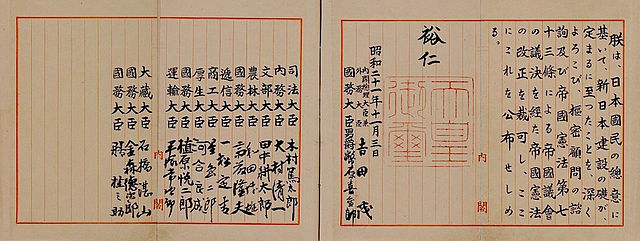 朕は、日本國民の總意に
基いて、新日本建設の礎が、
定まるに至つたことを、深く
よろこび、樞密顧問の諮
詢及び帝國憲法第七
十三條による帝國議會
の議決を経た帝國憲法
の改正を裁可し、ここ
にこれを公布せしめ
る。
裕仁
天皇
御璽
昭和二十一年十一月三日
内閣總理大臣兼
外務大臣 吉田茂
國務大臣 男爵 幣原喜重郎
内閣
司法大臣 木村篤太郎
内務大臣 大村清一
文部大臣 田中耕太郎
農林大臣 和田博雄
國務大臣 斎藤隆夫
逓信大臣 一松定吉
商工大臣 星島二郎
厚生大臣 河合良成
國務大臣 植原悦二郎
運輸大臣 平塚常次郎
大藏大臣 石橋湛山
國務大臣 金森徳次郎
國務大臣 膳桂之助
内閣